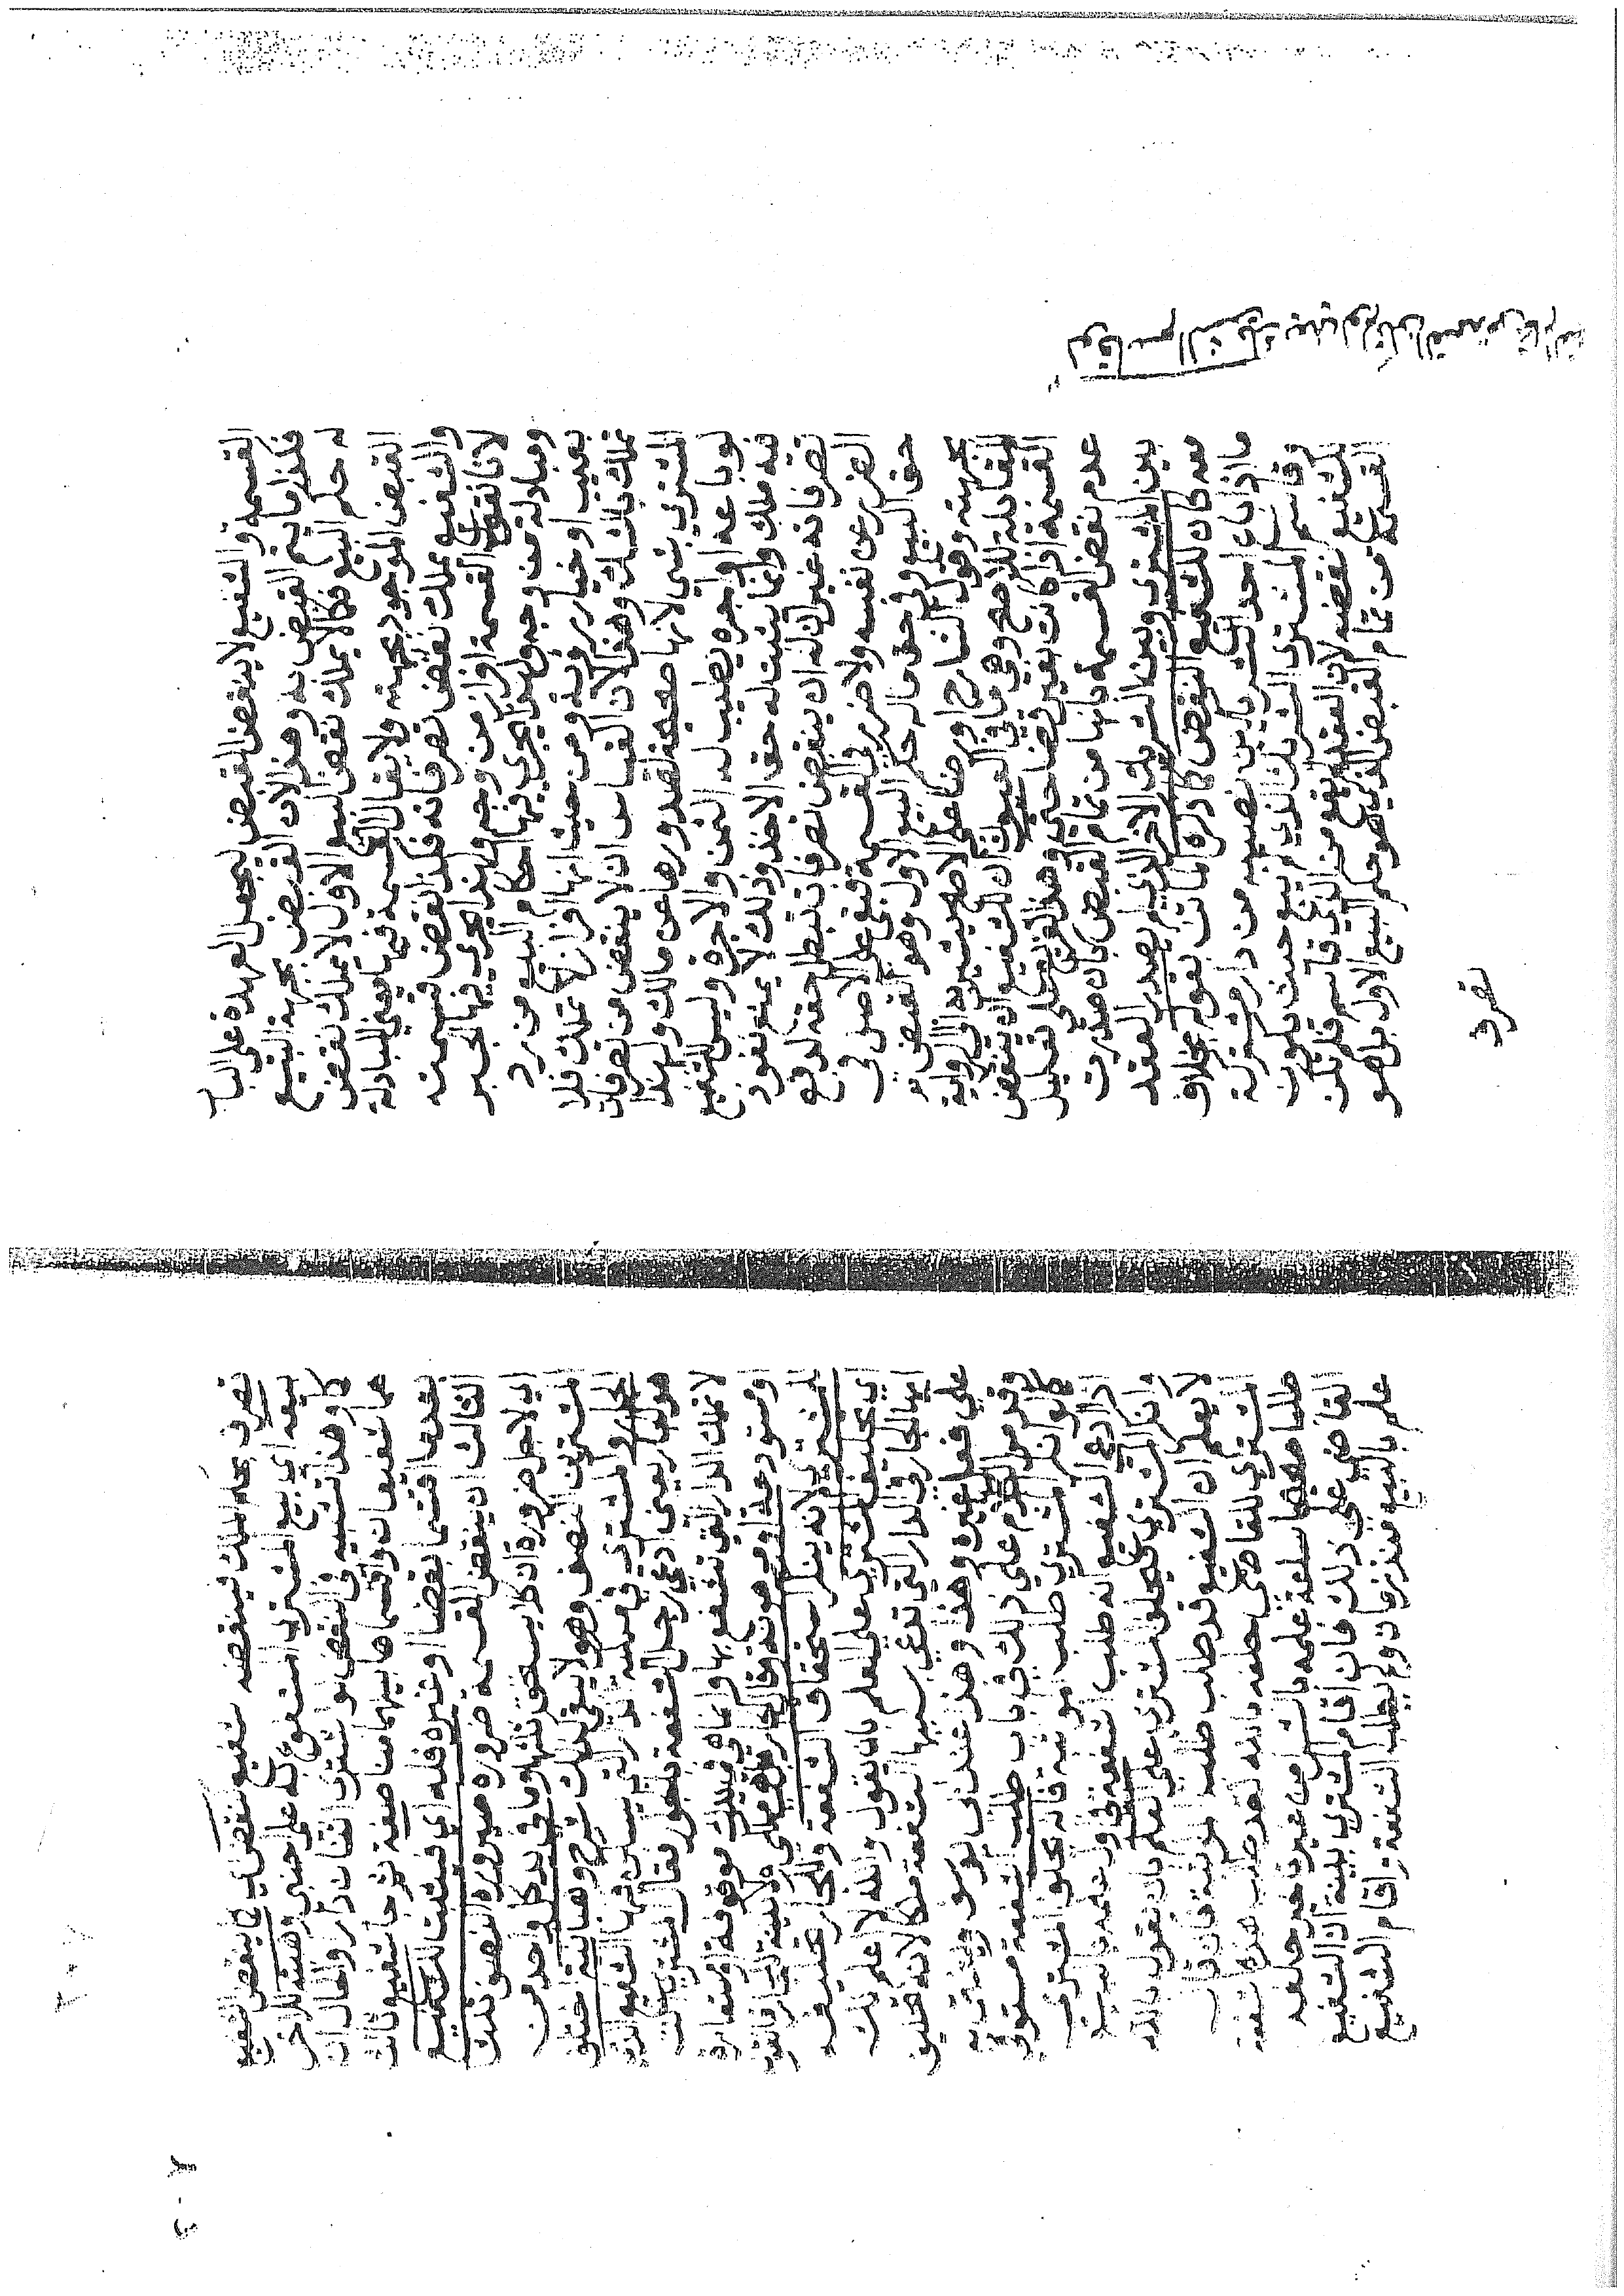 القسمة والشفيع لا ينقض القبض ليجعل العهدة على البا
فكذا ما يتم القبض به وهذا لان القبض بجهة البيع
له حكم البيع فكما لا يملك نقض البيع الاول لا يملك نقض
القبض الموجود بجهته ولا يقال القسمة فيها معنى المبادلة
والشفيع يملك نقض تصرفاته فكذا نقض قسمته
لانا نقول القسمة افراز من وجه ولهذا يجري فيها الجبر
ومبادلة من وجه ولهذا يجري فيها احكام البيع من رد
بعيب او خيار روية ومن حيث انها افراز لا تملك فلا
تملك بالشك وهذا لان القياس ان لا ينقض من تصرفات
المشتري شي لانها صحيحة لصدورها عن مالك ولهذا
لو باعه او اجره يطيب له الثمن والاجرة وليس للشفيع
فيه ملك وانما يثبت له حق الاخذ وذلك لا يمنع نفوذ
تصرفاته غير ان له ان ينقض تصرفات تبطل حقه لدفع
الضرر عن نفسه ولا ضرر في القسمة فبقي على الاصل في
حق البيع وفي حق ماله حكم البيع الاول وهو القبض
بجهته وقول الشارح الاصح يشير به الى الرواية
المقابلة للاصح وهي ما في العيون ان للشفيع ان ينقض
القسمة اذا كانت بغير قضا حتى وهذا الفرع على تعليل
عدم نقض القسمة بانها من تمام القبض بان صدرت
بين المشتري وبين الشريك الاخر الذي لم يصدر العقد
معه كان للشفيع النقض كما ذكره الماتن بقوله بخلاف
ما اذا باع احد الشريكين نصيبه من دار مشتركة
وقاسم المشتري الشريك الذي لم يبع حيث يكون
للشفيع نقضه لان العقد لم يقع من الذي قاسم فلم تكن
القسمة من تمام القبض الذي هو حكم البيع الاول بل هو
تصرف
تصرف بحكم الملك فينقضه الشفيع كما ينقض الشفيع
بيعه اي بيع المشتري المشفوع كله على اجنبي وهبته للاخر
كما وهذا تشبيه في النقض لو اشترى اثنان دار والحال ان
هما شفيعان واقتسماها بينهما مناصفة ثم جا شفيع ثالث
بعدما اقتسما بقضا او غيره فله اي فيثبت للشفيع
الثالث ان ينقض القسمة ضرورة صيرورة النصف ثلث
اي لاجل ضرورة ان كلا يستحق ثلثها وما في يد كل واحد من
المشتريين النصف وهو لا يبقى كذلك شرح وهبانية اختلف
الجار والمشتري في ملكية الدار التي يسكن فيها الشفيع الذي
هو الجار يعني ادعى رجل الشفعة بالجوار فقال المشتري انت
لا تملك الدار التي تشفع بها وانما هي في يدك موقوفة او مستعارة
او مستودعة او مرهونة وقال الجار هي ملكي ولا بينة للجار فالقول
للمشتري لانه ينكر استحقاق الشفعة وللجار تحليفه
اي تحليف المشتري على العلم بان يقول والله لا اعلم انك
ايها الجار في الدار التي تدعي بسببها الشفعة مالكا لانه تحليف
على فعل غيره وهذا عند ابي يوسف وبه يفتى
وقدم الكلام على ذلك في باب طلب الشفعة مستوفى
كما لو انكر المشتري طلب المواثبة فانه يحلف المشتري
اذا ادعى الشفيع انه طلب الشفعة فور علمه بالمبيع
وانكر المشتري فيحلف المشتري على العلم بان يقول بالله
لا يعلم ان الشفيع قد طلب طلب المواثبة فان قال
المشتري للقاضي حلفه بالله لقد طلب هذه الشفعة
طلبا صحيحا ساعة علمه بالشرا من غير تاخير حلفه
القاضي على ذلك فان اقام المشتري بينة ان الشفيع
علم بالبيع منذ زمان ولم يطلب الشفعة واقام الشفيع